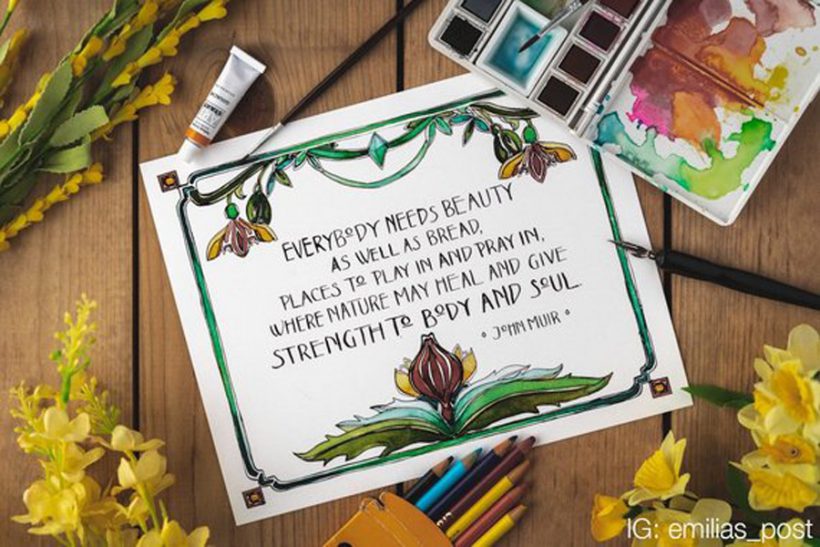 EVERYBODY NEEDS BEAUTY
AS WELL AS BREAD,
PLACES TO PLAY IN AND PRAY IN,
WHERE NATURE MAY HEAL AND GIVE
STRENGTH TO BODY AND SOUL.
• JOHN MUIR •
IG: emilias_post